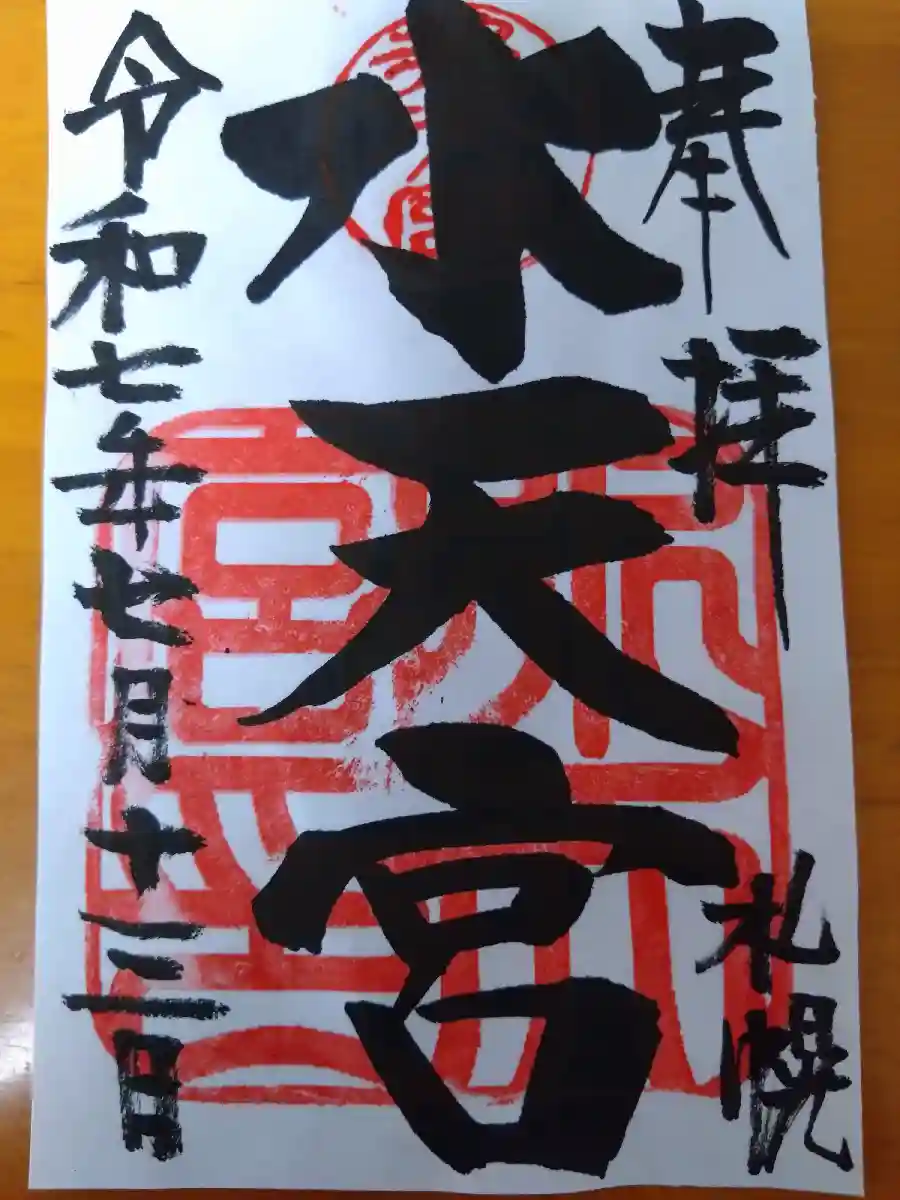 奉拝
札幌
水天宮
令和七年七月十三日